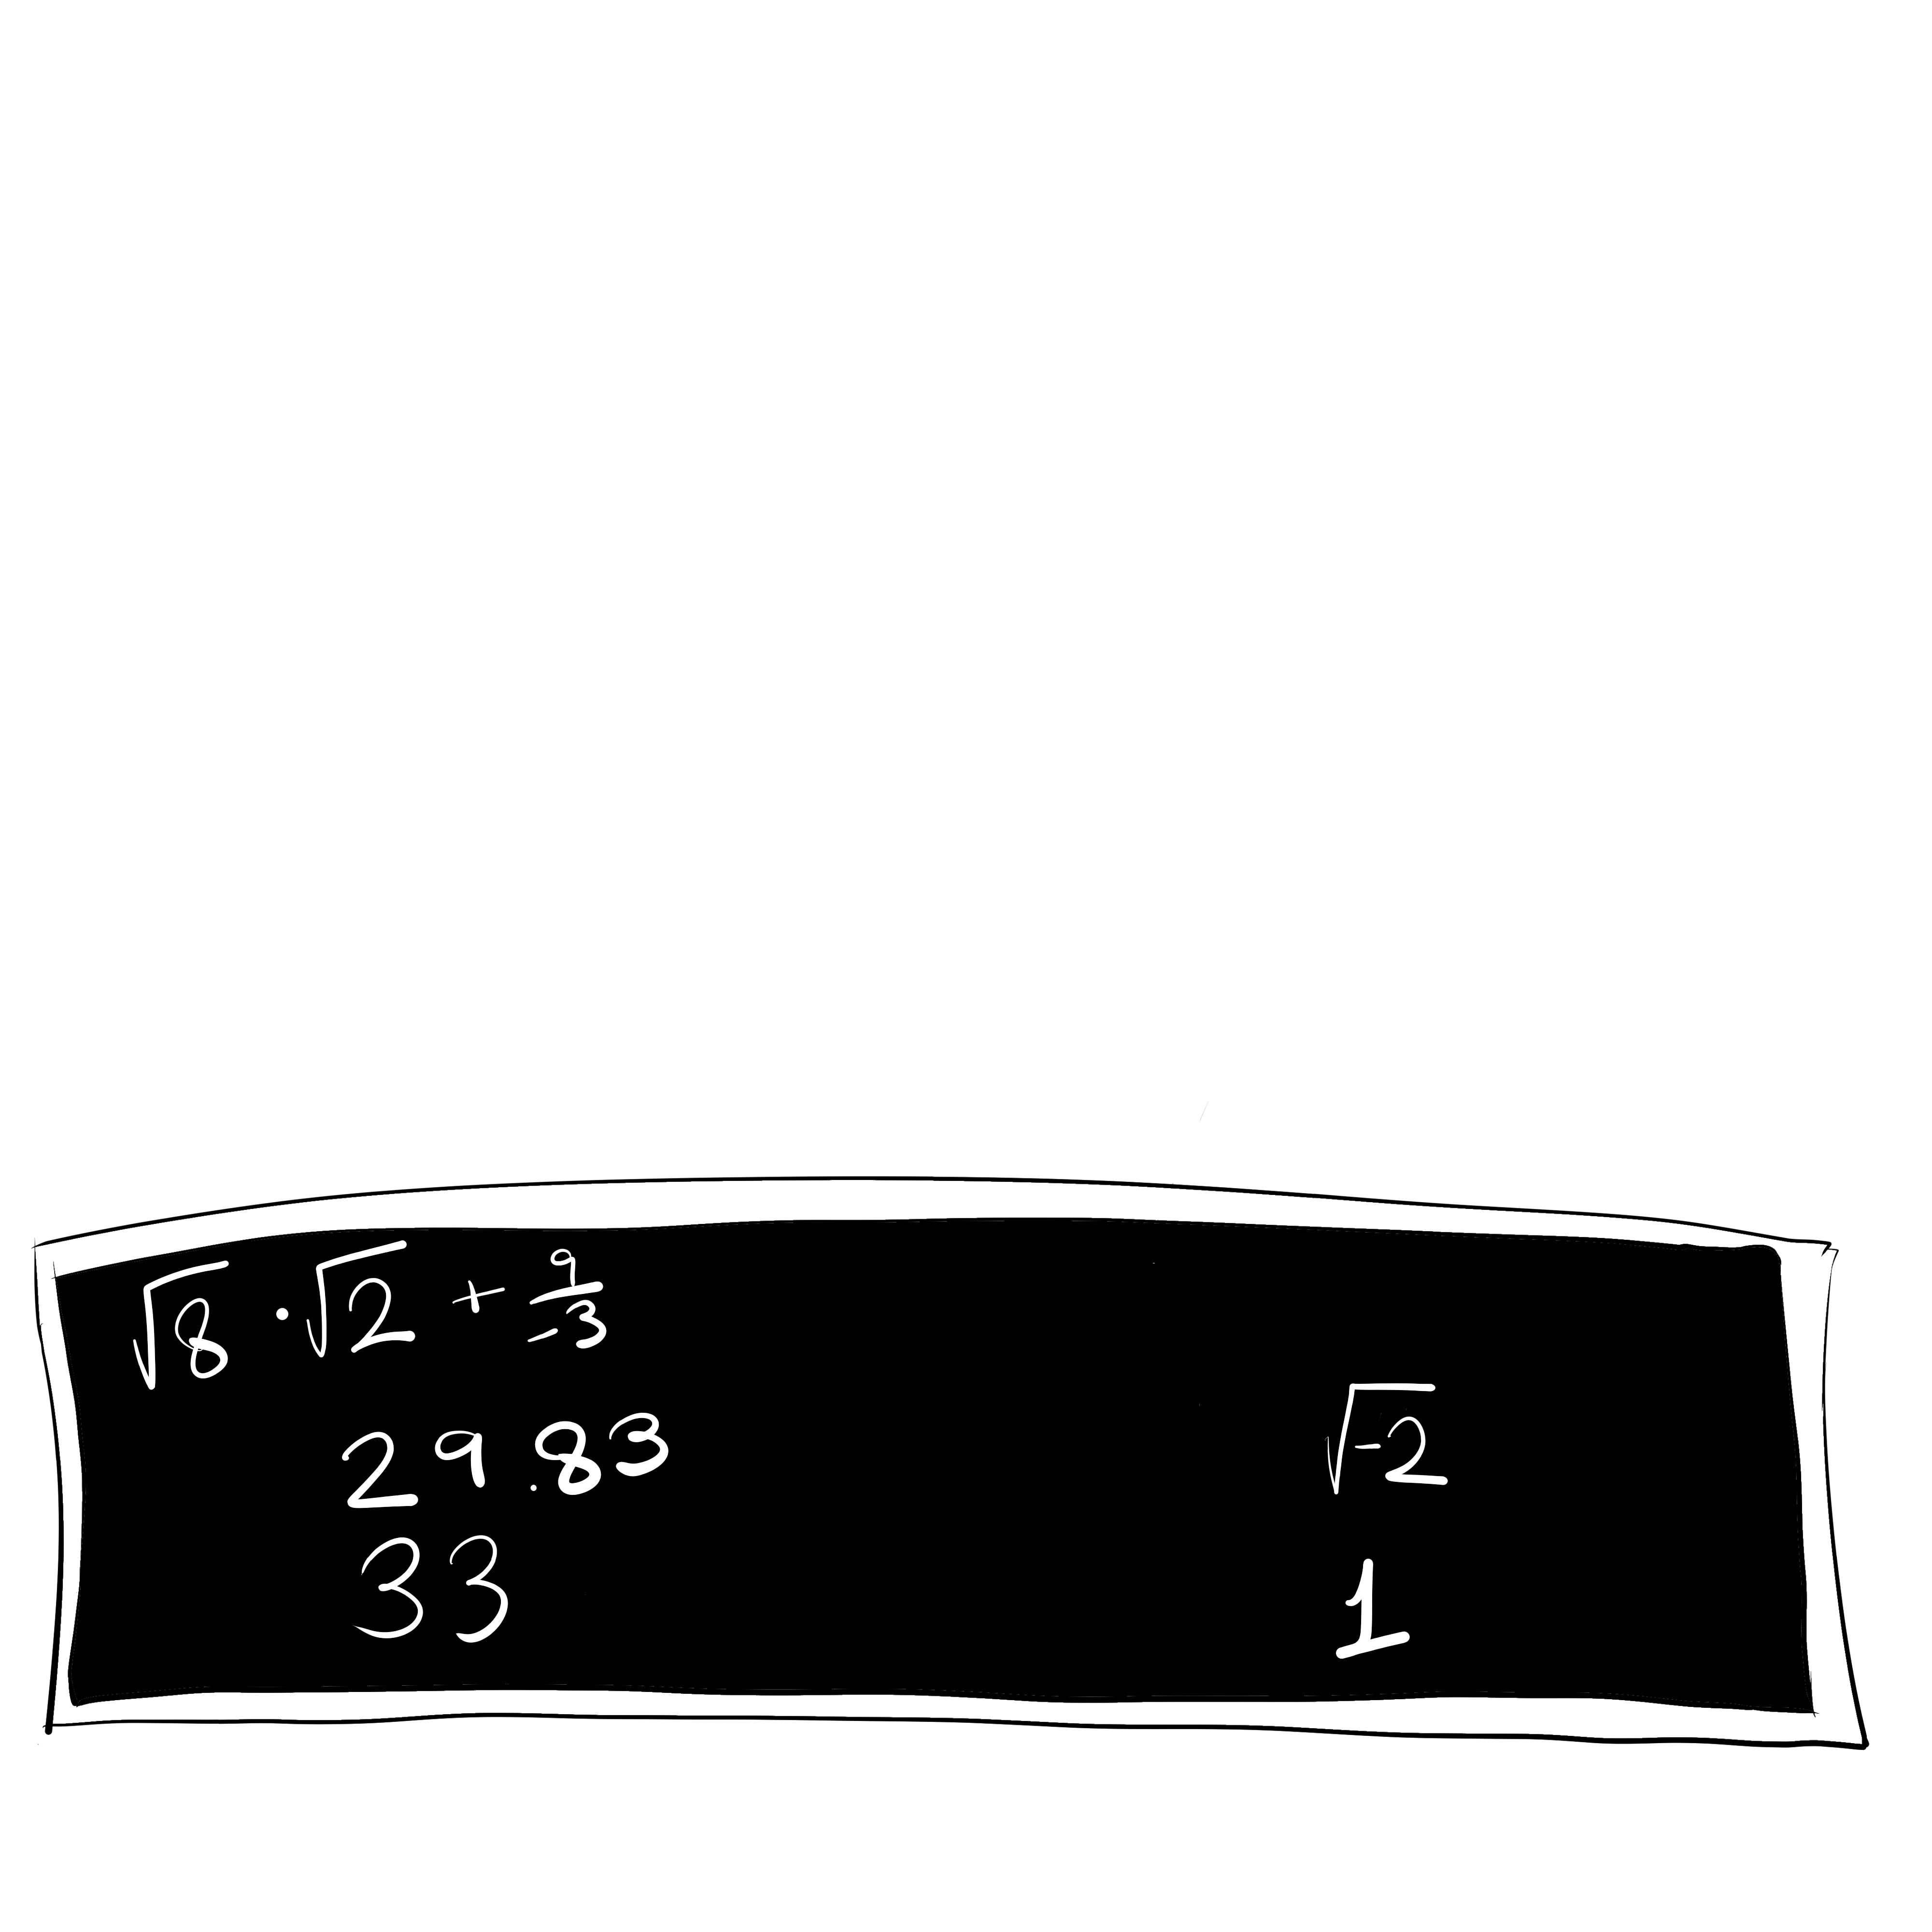 √8 · √2 + 9/-3
29.83
√-2
33
1